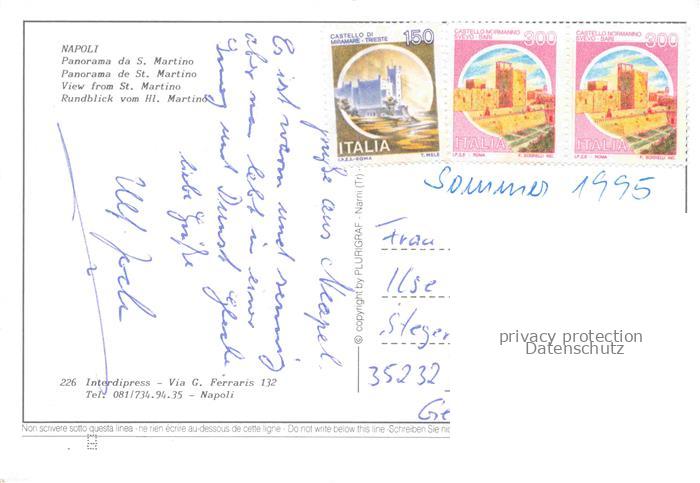 NAPOLI
Panorama da S. Martino
Panorama de St. Martino
View from St. Martino
Rundblick vom Hl. Martino
CASTELLO DI
MIRAMARE - TRIESTE
150
ITALIA
I.P.Z.S. - ROMA T. MELE
CASTELLO NORMANNO
SVEVO - BARI
300
ITALIA
I.P.Z.S. - ROMA
CASTELLO NORMANNO
SVEVO - BARI
300
ITALIA
I.P.Z.S. - ROMA
Sommer 1995
Grüße aus Neapel.
Es ist warm und sonnig
aber man lebt in einer
und Dunst Glocke.
Liebe Grüße
© copyright by PLURIGRAF - Narni (Tr) -
Frau
Ilse
Steger
35232
privacy protection
Datenschutz
226 Interdipress - Via G. Ferraris 132
Tel. 081/734.94.35 - Napoli
Non scrivere sotto questa linea - ne rien écrire au-dessous de cette ligne - Do not write below this line - Schreiben Sie